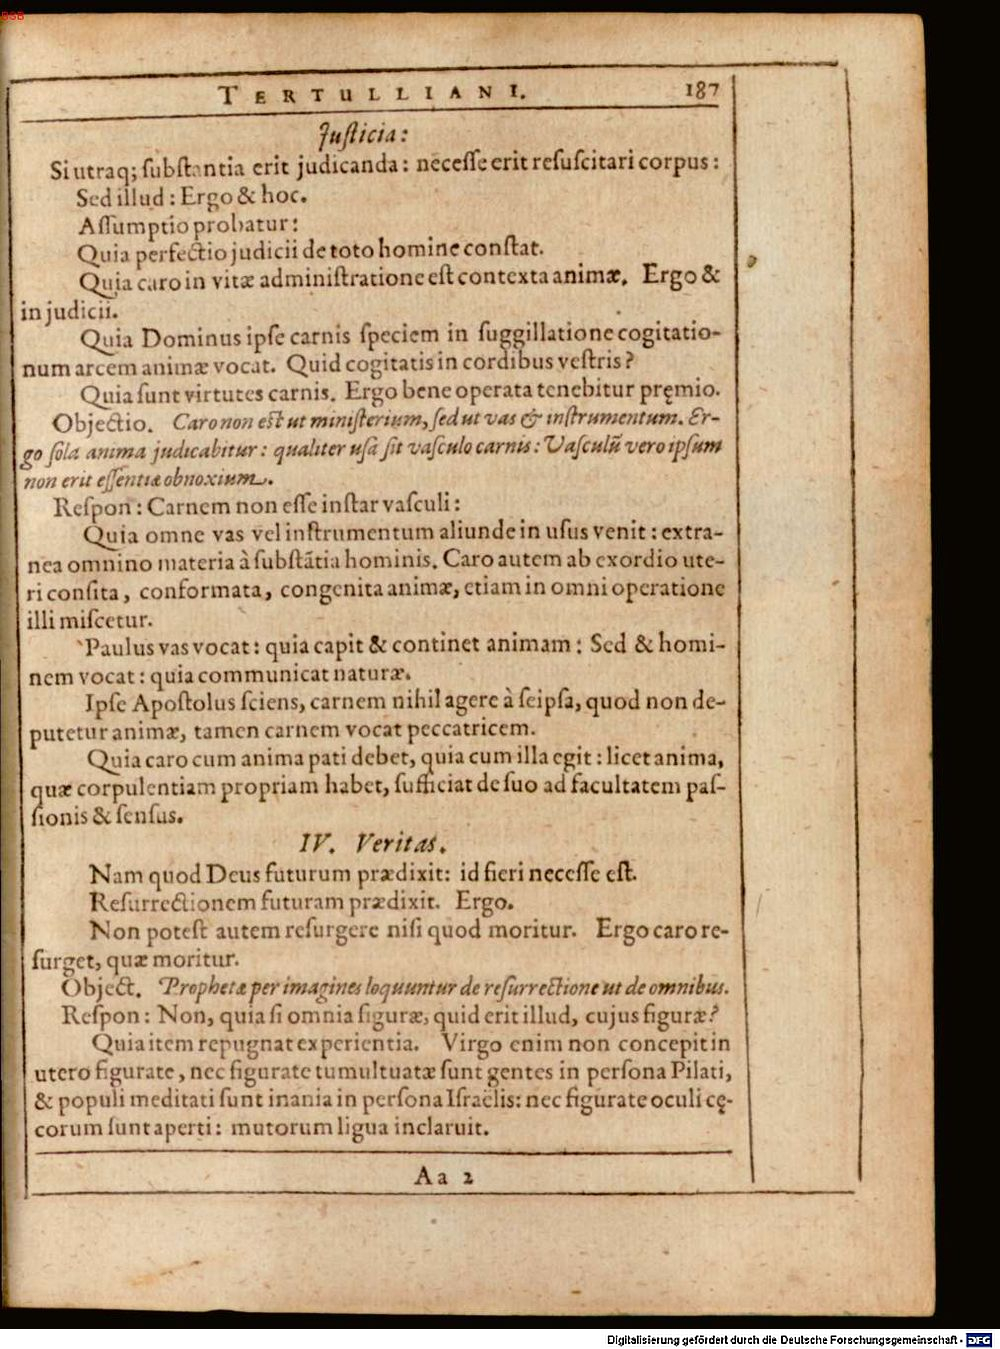 BSB
TERTULLIANI. 187
Juſticia:
Si utraq; ſubſtantia erit judicanda: neceſſe erit reſuſcitari corpus:
Sed illud: Ergo & hoc.
Aſſumptio probatur:
Quia perfectio judicii de toto homine conſtat.
Quia caro in vitæ adminiſtratione eſt contexta animæ. Ergo &
in judicii.
Quia Dominus ipſe carnis ſpeciem in ſuggillatione cogitatio-
num arcem animæ vocat. Quid cogitatis in cordibus veſtris?
Quia ſunt virtutes carnis. Ergo bene operata tenebitur pręmio.
Objectio. Caro non eſt ut miniſterium, ſed ut vas & inſtrumentum. Er-
go ſola anima judicabitur: qualiter uſa ſit vaſculo carnis: Vaſculũ vero ipſum
non erit eſſentiæ obnoxium.
Reſpon: Carnem non eſſe inſtar vaſculi:
Quia omne vas vel inſtrumentum aliunde in uſus venit: extra-
nea omnino materia à ſubſtãtia hominis. Caro autem ab exordio ute-
ri conſita, conformata, congenita animæ, etiam in omni operatione
illi miſcetur.
Paulus vas vocat: quia capit & continet animam: Sed & homi-
nem vocat: quia communicat naturæ.
Ipſe Apoſtolus ſciens, carnem nihil agere à ſeipſa, quod non de-
putetur animæ, tamen carnem vocat peccatricem.
Quia caro cum anima pati debet, quia cum illa egit: licet anima,
quæ corpulentiam propriam habet, ſufficiat de ſuo ad facultatem paſ-
ſionis & ſenſus.
IV. Veritas.
Nam quod Deus futurum prædixit: id fieri neceſſe eſt.
Reſurrectionem futuram prædixit. Ergo.
Non poteſt autem reſurgere niſi quod moritur. Ergo caro re-
ſurget, quæ moritur.
Object. Prophetæ per imagines loquuntur de reſurrectione ut de omnibus.
Reſpon: Non, quia ſi omnia figuræ, quid erit illud, cujus figuræ?
Quia item repugnat experientia. Virgo enim non concepit in
utero figurate, nec figurate tumultuatæ ſunt gentes in perſona Pilati,
& populi meditati ſunt inania in perſona Iſraëlis: nec figurate oculi cę-
corum ſunt aperti: mutorum ligua inclaruit.
Aa 2
Digitalisierung gefördert durch die Deutsche Forschungsgemeinschaft - DFG